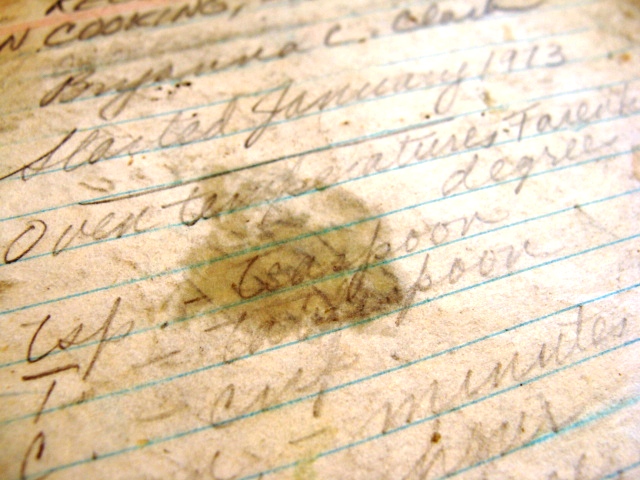 N. COOKING,
Bryanna C. Clark
Started January 1973
Oven temperatures
degrees
tsp. - teaspoon
T. - tablespoon
C - cup
- minutes
- hour